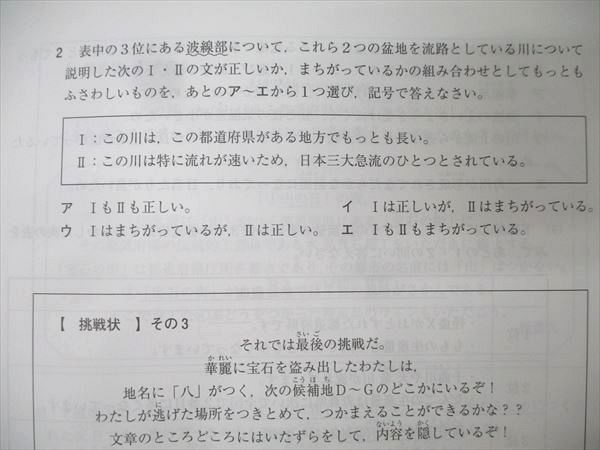 2 表中の3位にある波線部について，これら2つの盆地を流路としている川について
説明した次のⅠ・Ⅱの文が正しいか，まちがっているかの組み合わせとしてもっとも
ふさわしいものを，あとのア～エから1つ選び，記号で答えなさい。
Ⅰ：この川は，この都道府県がある地方でもっとも長い。
Ⅱ：この川は特に流れが速いため，日本三大急流のひとつとされている。
ア ⅠもⅡも正しい。 イ Ⅰは正しいが，Ⅱはまちがっている。
ウ Ⅰはまちがっているが，Ⅱは正しい。 エ ⅠもⅡもまちがっている。
【 挑戦状 】その3
それでは最後の挑戦だ。
華麗に宝石を盗み出したわたしは，
地名に「八」がつく，次の候補地D～Gのどこかにいるぞ！
わたしが逃げた場所をつきとめて，つかまえることができるかな？？
文章のところどころにはいたずらをして，内容を隠しているぞ！